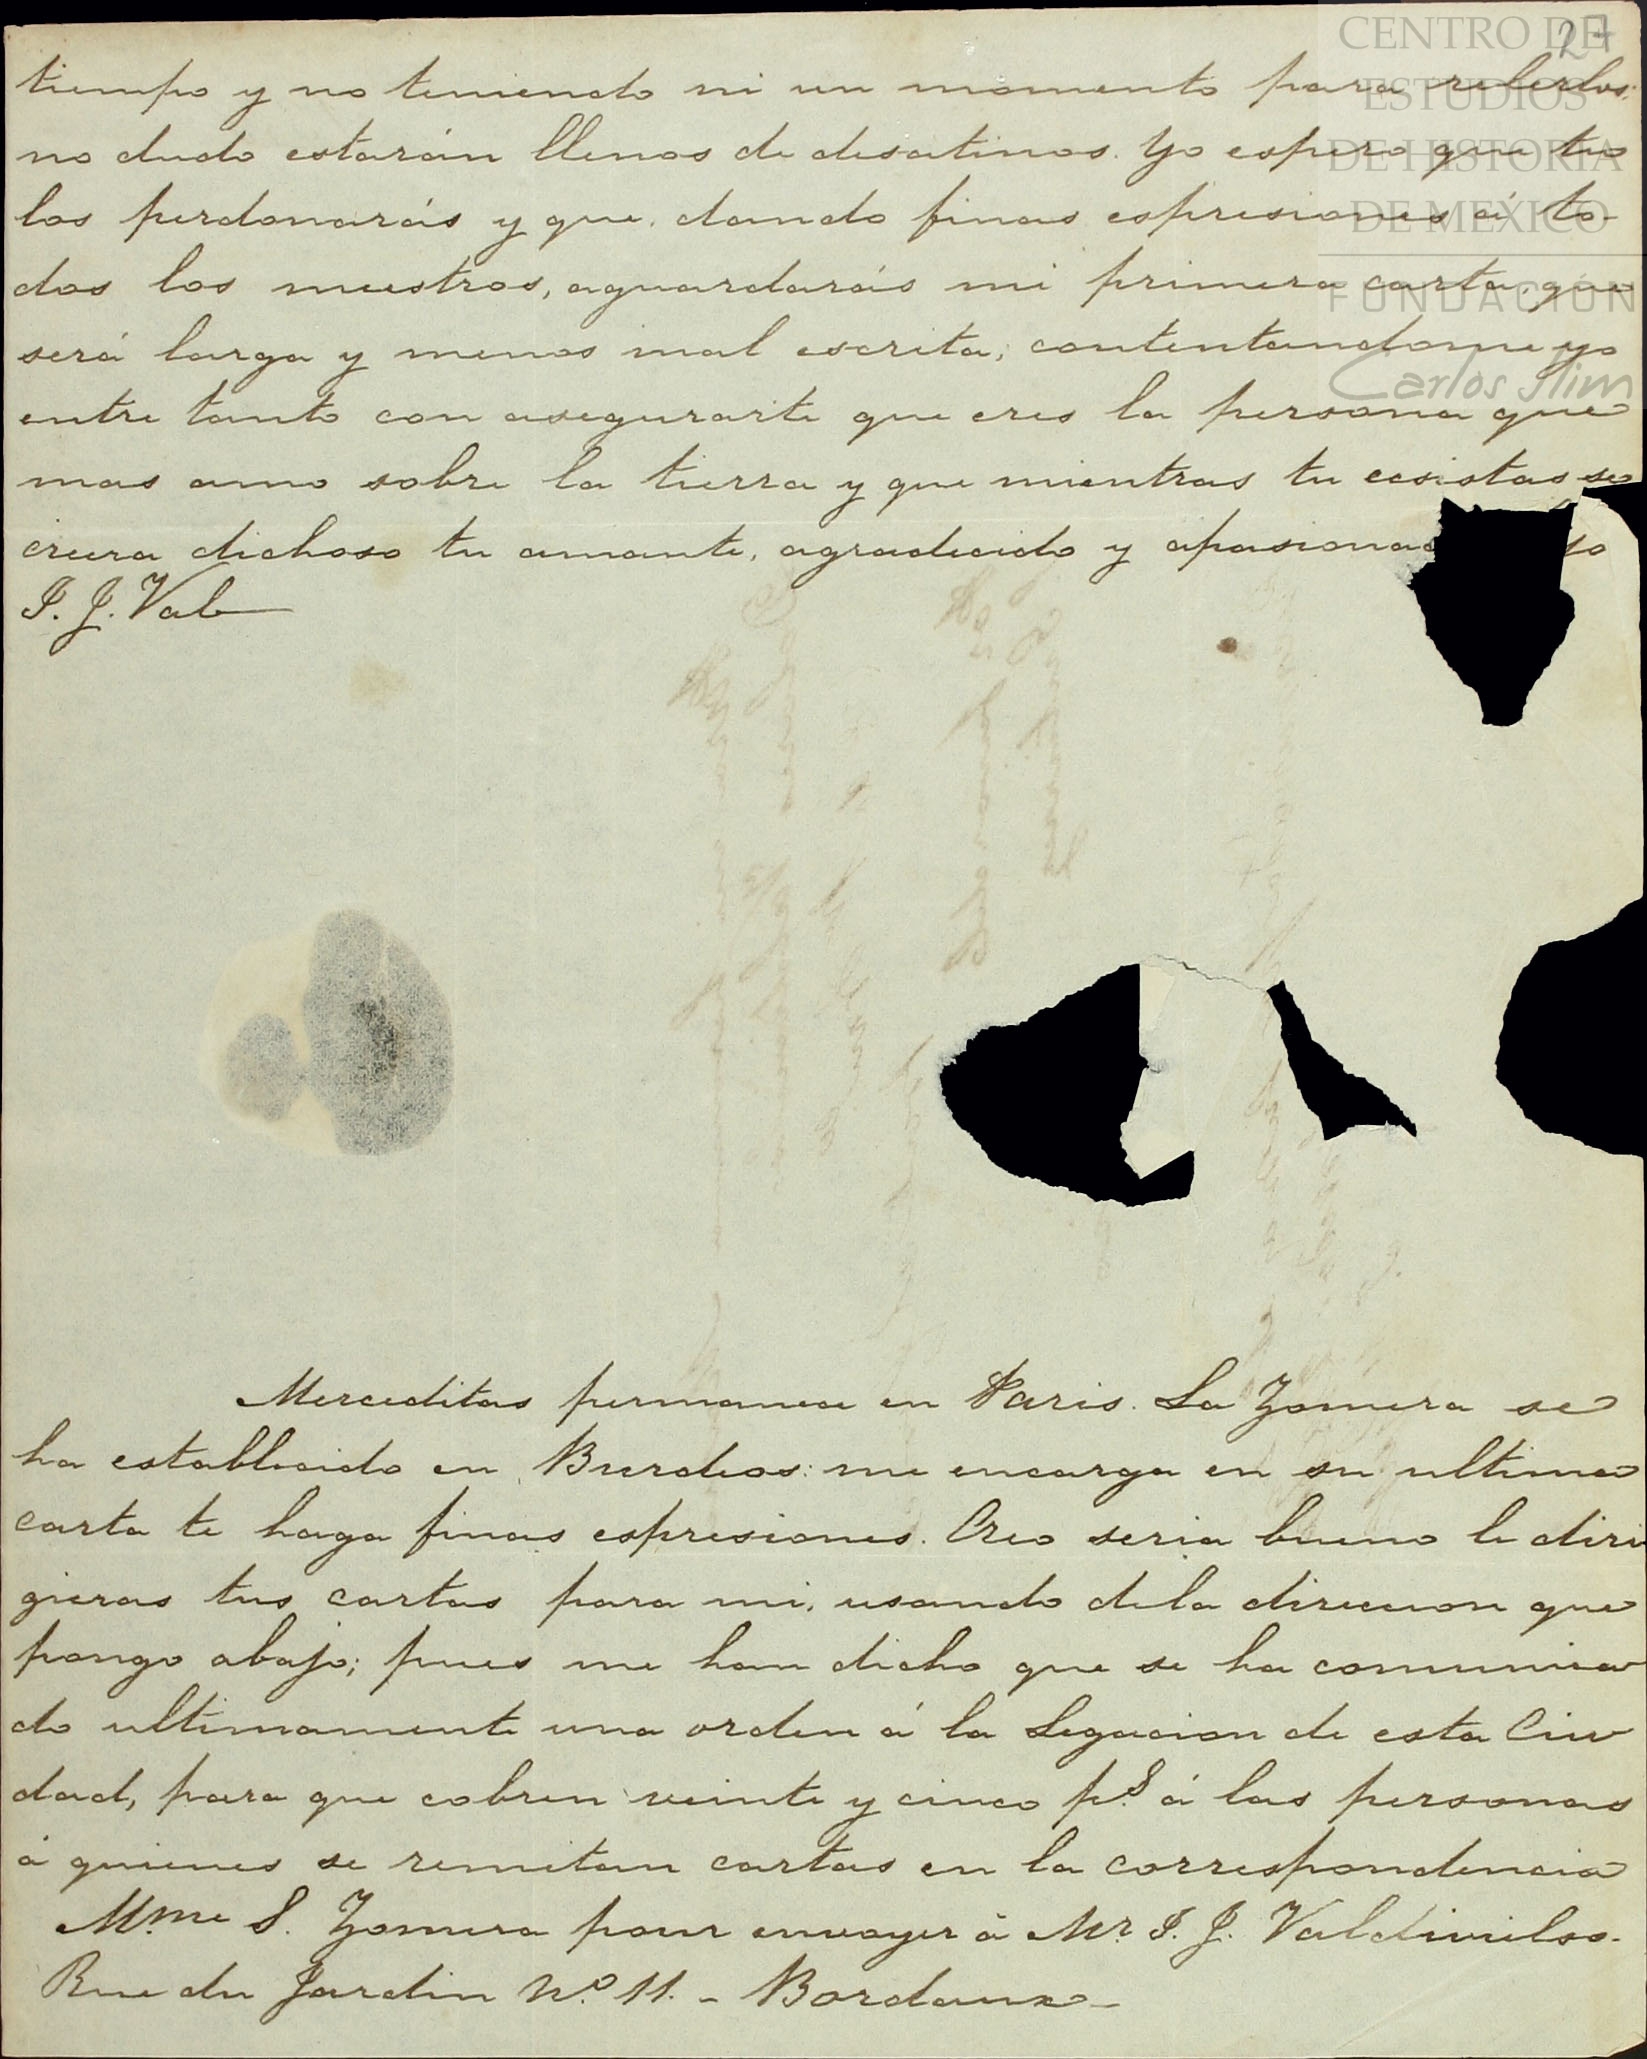 27
CENTRO DE
ESTUDIOS
DE HISTORIA
DE MEXICO
FUNDACIÓN
Carlos Slim
tiempo y no teniendo ni un momento para
no dudo estarán llenos de desatinos. Yo espero que tu
los perdonarás y que, dando finas espresiones á to-
dos los nuestros, aguardarás mi primera carta, que
será larga y menos mal escrita; contentandome yo
entre tanto con asegurarte que eres la persona que
mas amo sobre la tierra y que mientras tu ecsistas se
creera dichoso tu amante, agradecido y apasionad
I. J. Val
Merceditas permanece en Paris. La Zomera se
ha establecido en Burdeos: me encarga en su ultima
carta te haga finas espresiones. Creo seria bueno le diri
gieras tus cartas para mi, usando dela direccion que
pongo abajo; pues me han dicho que se ha comunica
do ultimamente una orden á la Legacion de esta Ciu
dad, para que cobren veinte y cinco p.s á las personas
á quienes se remitan cartas en la correspondencia
Mme S. Zomera pour envoyer à Mr. I. J. Valdivielso.
Rue du Jardin N.o 11. - Bordeaux-